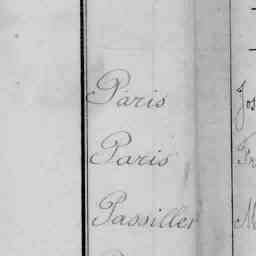 Paris
Paris
Passiller